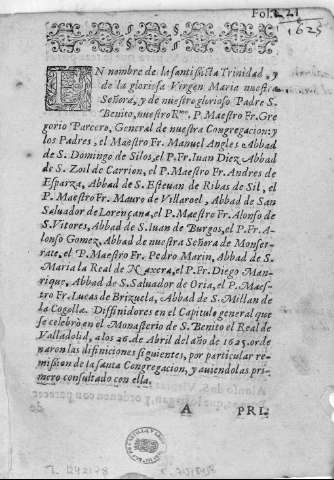 Fol. 1.
1625
IN nombre de la santissima Trinidad, y
de la gloriosa Virgen Maria nuestra
Señora, y de nuestro glorioso Padre S.
Benito, nuestro Rmo. P. Maestro Fr. Gre
gorio Parcero, General de nuestra Congregacion: y
los Padres, el Maestro Fr. Manuel Angles Abbad
de S. Domingo de Silos, el P. Fr. Iuan Diez Abbad
de S. Zoil de Carrion, el P. Maestro Fr. Andres de
Esparza, Abbad de S. Esteuan de Ribas de Sil, el
P. Maestro Fr. Mauro de Villaroel, Abbad de San
Saluador de Lorençana, el P. Maestro Fr. Alonso de
S. Vitores, Abbad de S. Iuan de Burgos, el P. Fr. A-
lonso Gomez, Abbad de nuestra Señora de Monser-
rate, el P. Maestro Fr. Pedro Marin, Abbad de S.
Maria la Real de Naxera, el P. Fr. Diego Man-
rique, Abbad de S. Saluador de Oria, el P. Maes-
tro Fr. Lucas de Brizuela, Abbad de S. Millan de
la Cogolla. Diffinidores en el Capitulo general que
se celebrò en el Monasterio de S. Benito el Real de
Valladolid, a los 26. de Abril del año de 1625. orde
naron las difiniciones siguientes, por particular re-
mission de la santa Congregacion, y auiendolas pri-
mero consultado con ella.
A PRI-